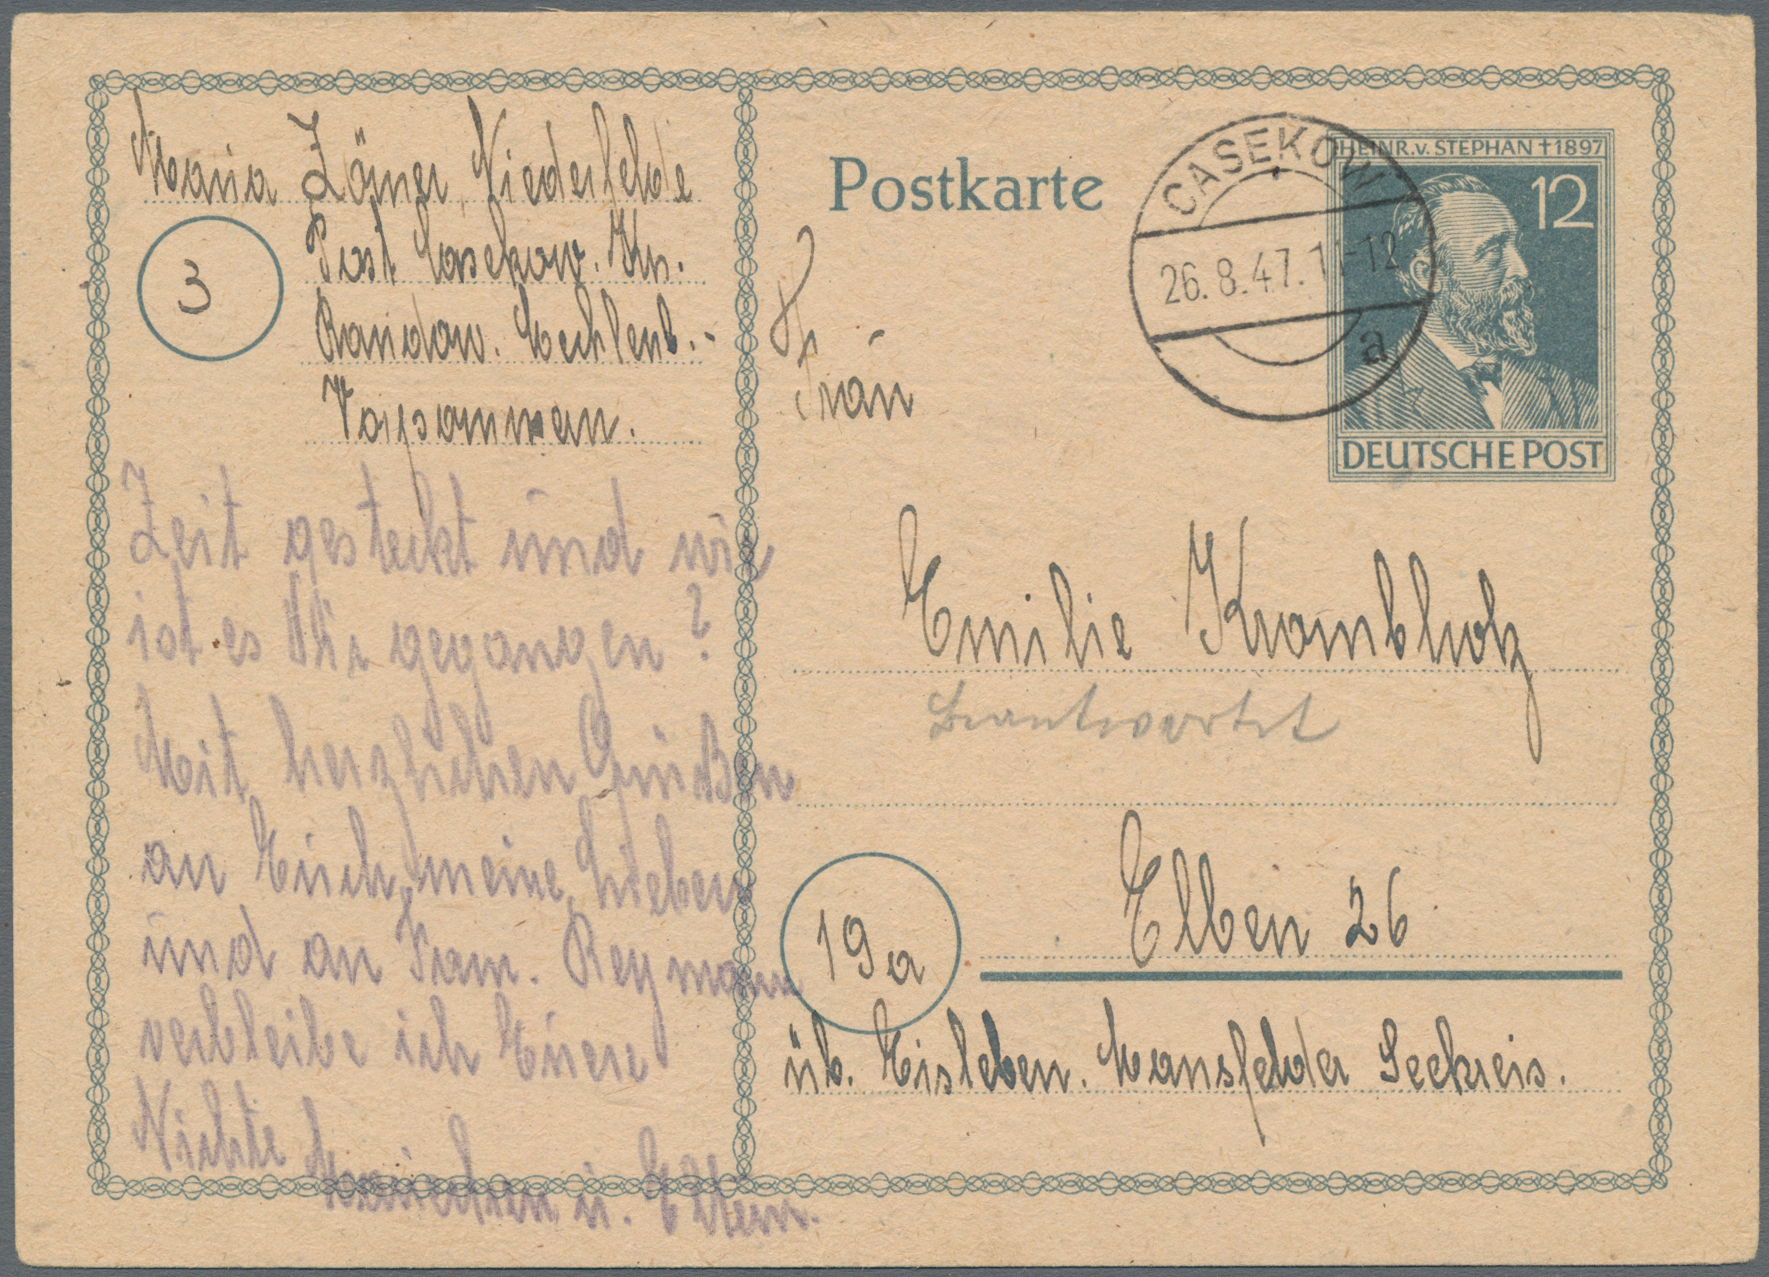 Maria Zörner, Niederfelde
3
Post Casekow. Krs.
Randow. Mecklenb.-
Vorpommern.
Zeit gesteckt und wie
ist es Dir gegangen?
Mit herzlichen Grüßen
an Euch, meine Lieben
und an Fam. Reymann
verbleibe ich Eure
Nichte
Mariechen u. Eltern.
Postkarte
CASEKOW
26.8.47.11-12
a
HEINR.v.STEPHAN †1897
12
DEUTSCHE POST
Frau
Emilie Krombholz
Beantwortet
19a
Elben 26
üb. Eisleben. Mansfelder Seekreis.